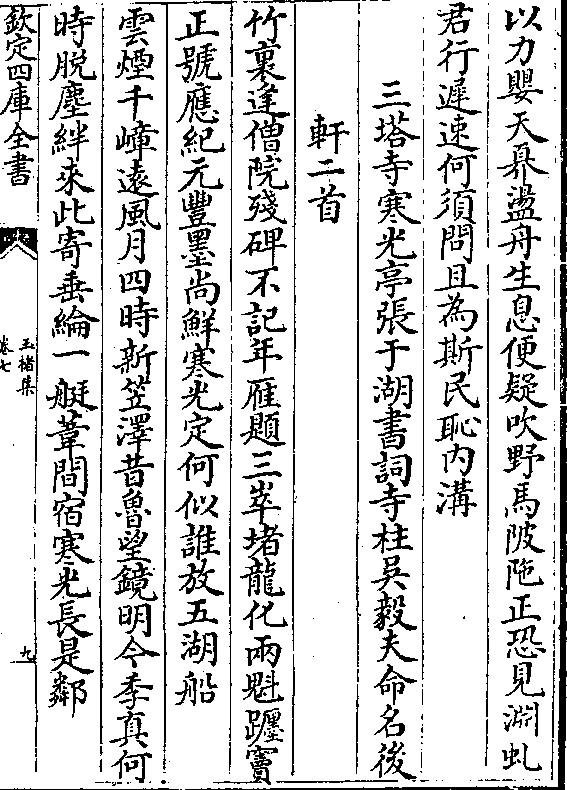 以力嬰天鼎盪舟生息便疑吹野馬陂陁正恐見淵虬
君行遲速何須問且為斯民恥内溝
三塔寺寒光亭張于湖書詞寺柱吳毅夫命名後
軒二首
竹裏逢僧院殘碑不記年雁題三崒堵龍化兩魁躔寳
正號應紀元豐墨尚鮮寒光定何似誰放五湖船
雲煙千嶂遠風月四時新笠澤昔魯望鏡明今季真何
時脱塵絆來此寄垂綸一艇葦間宿寒光長是鄰
欽定四庫全書
玉楮集
卷七
九